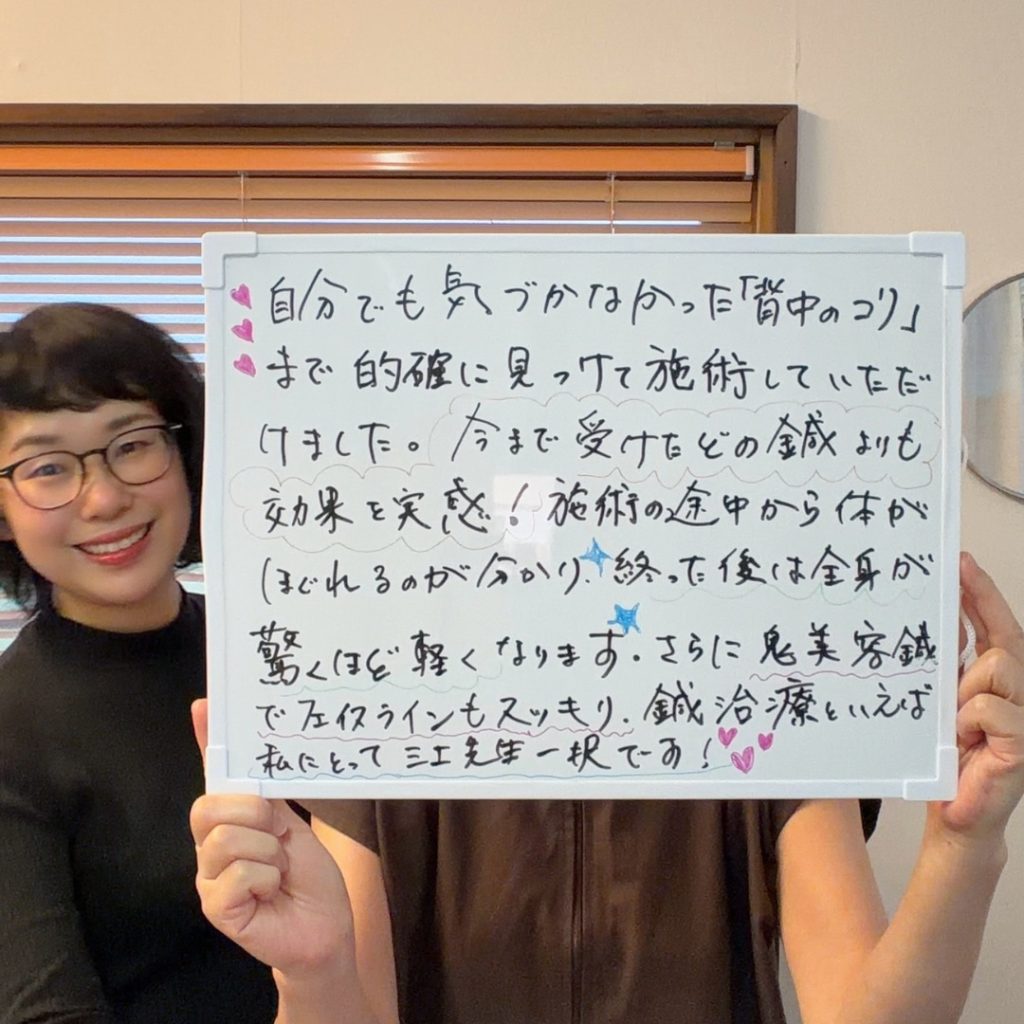 自分でも気づかなかった「背中のコリ」
まで的確に見つけて施術していただ
けました。今まで受けたどの鍼よりも
効果を実感！施術の途中から体が
ほぐれるのが分かり、終った後は全身が
驚くほど軽くなります。さらに鬼美容鍼
でフェイスラインもスッキリ。鍼治療といえば
私にとって三上先生一択です！